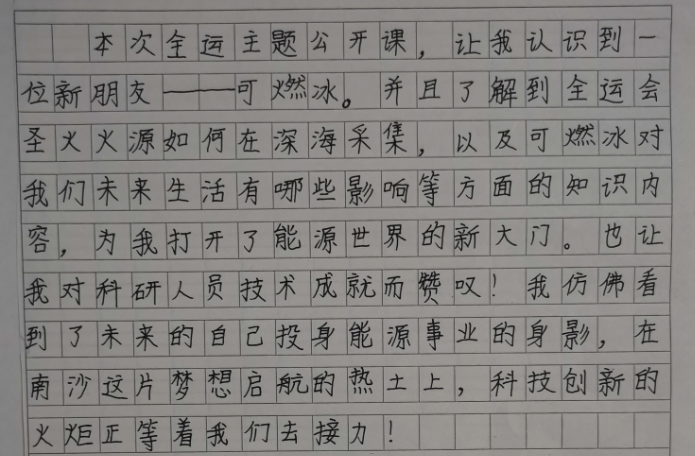 本次全运主题公开课，让我认识到一
位新朋友——可燃冰。并且了解到全运会
圣火火源如何在深海采集，以及可燃冰对
我们未来生活有哪些影响等方面的知识内
容，为我打开了能源世界的新大门。也让
我对科研人员技术成就而赞叹！我仿佛看
到了未来的自己投身能源事业的身影，在
南沙这片梦想启航的热土上，科技创新的
火炬正等着我们去接力！